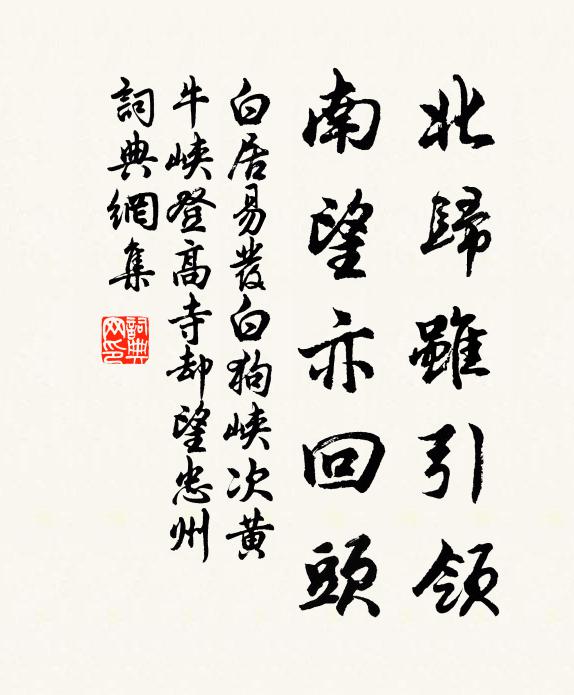 北歸雖引領
南望亦回頭
白居易發白狗峽次黃
牛峽登高寺却望忠州
詞典網集
詞典
网印